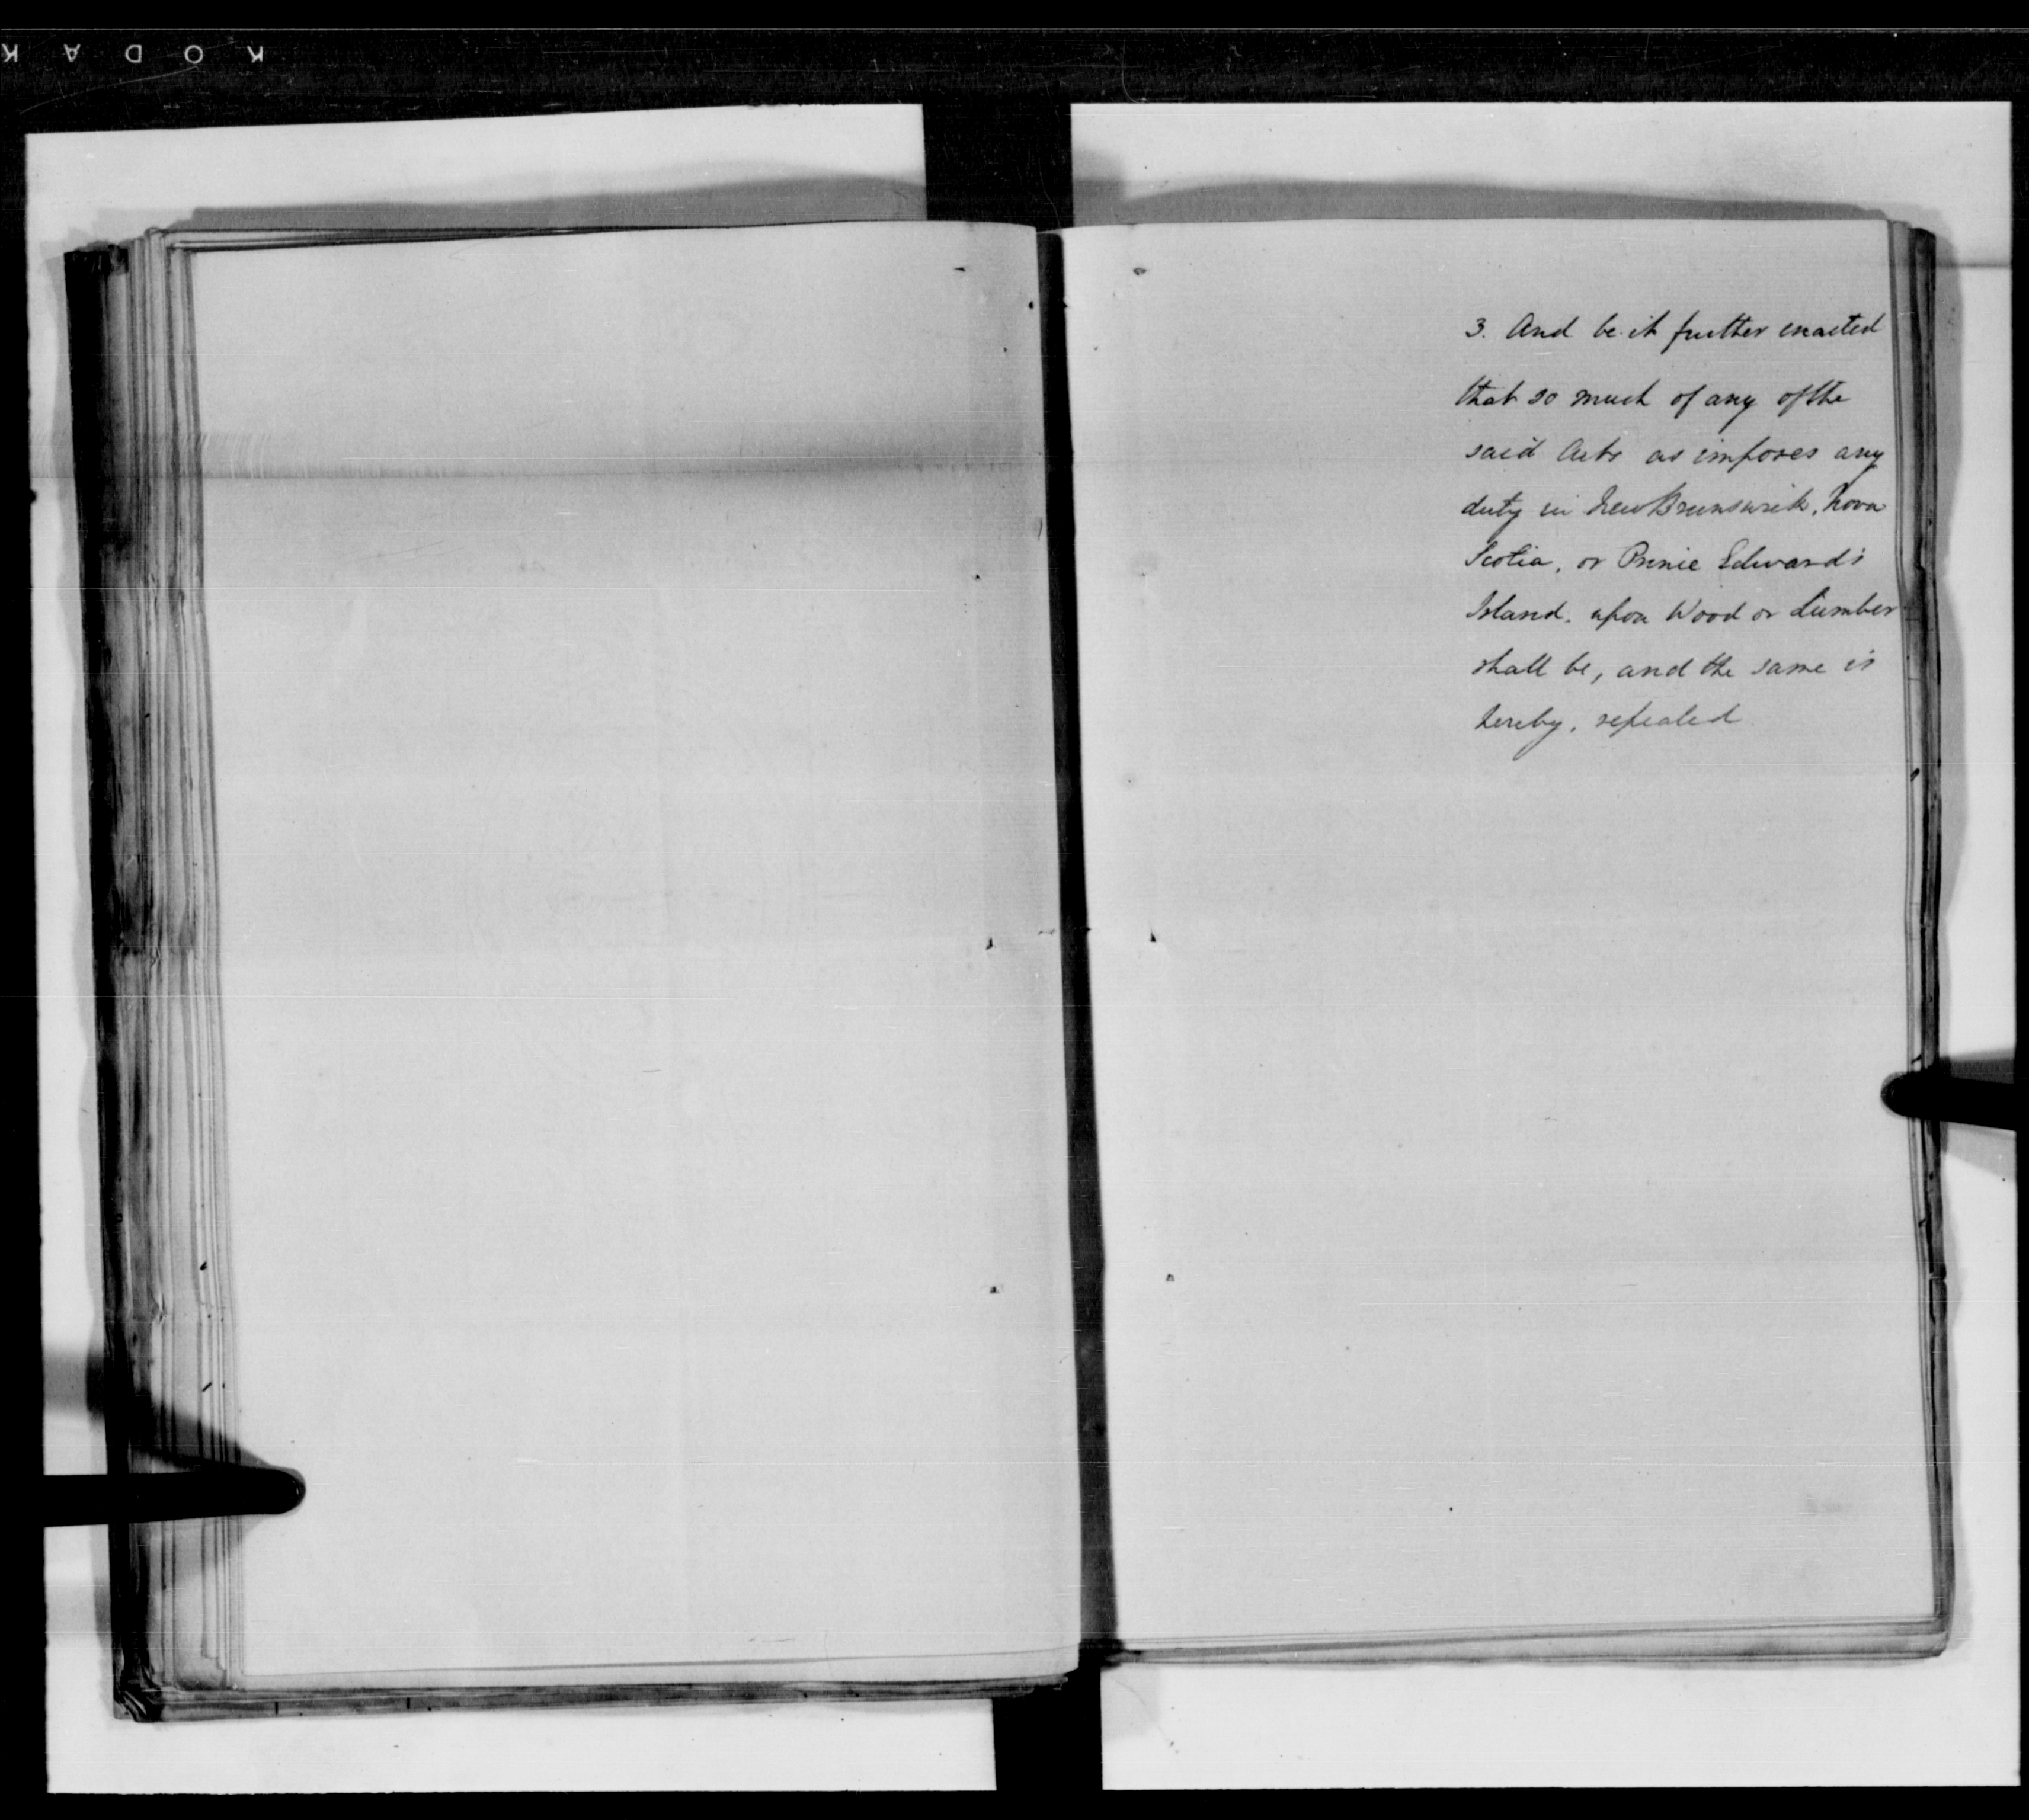 KODAK
3. And be it further enacted
that so much of any of the
said Acts as imposes any
duty in New Brunswick, Nova
Scotia, or Prince Edward's
Island, upon Wood or Lumber
shall be, and the same is
hereby, repealed